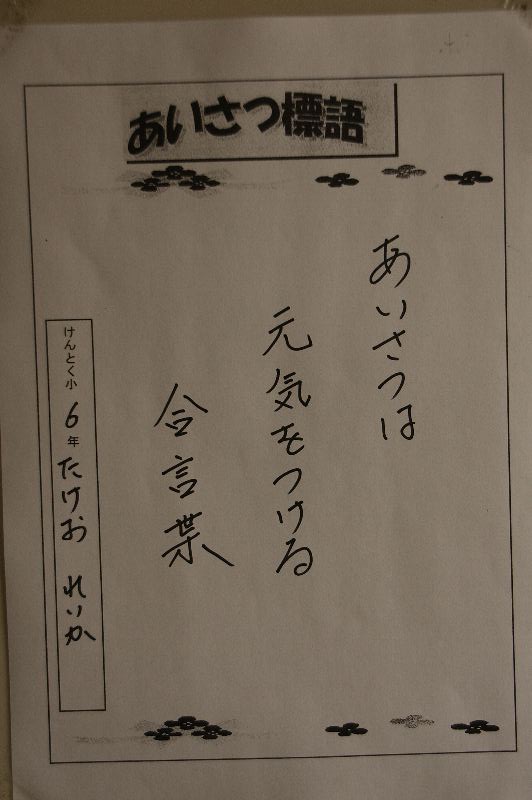 あいさつ標語
あいさつは
元気をつける
合言葉
けんとく小 6年 たけお れいか